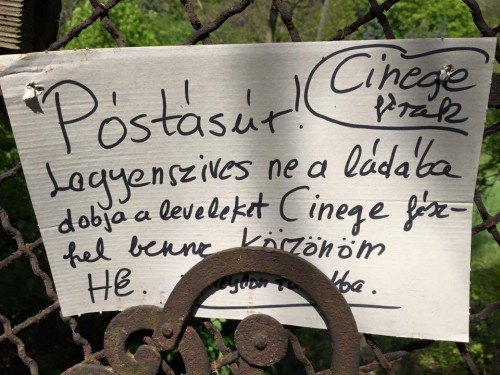 Póstásúr!
Cinege
fészk
Legyenszives ne a ládába
dobja a leveleket Cinege fész-
kel benne Köszönöm
HÉ.